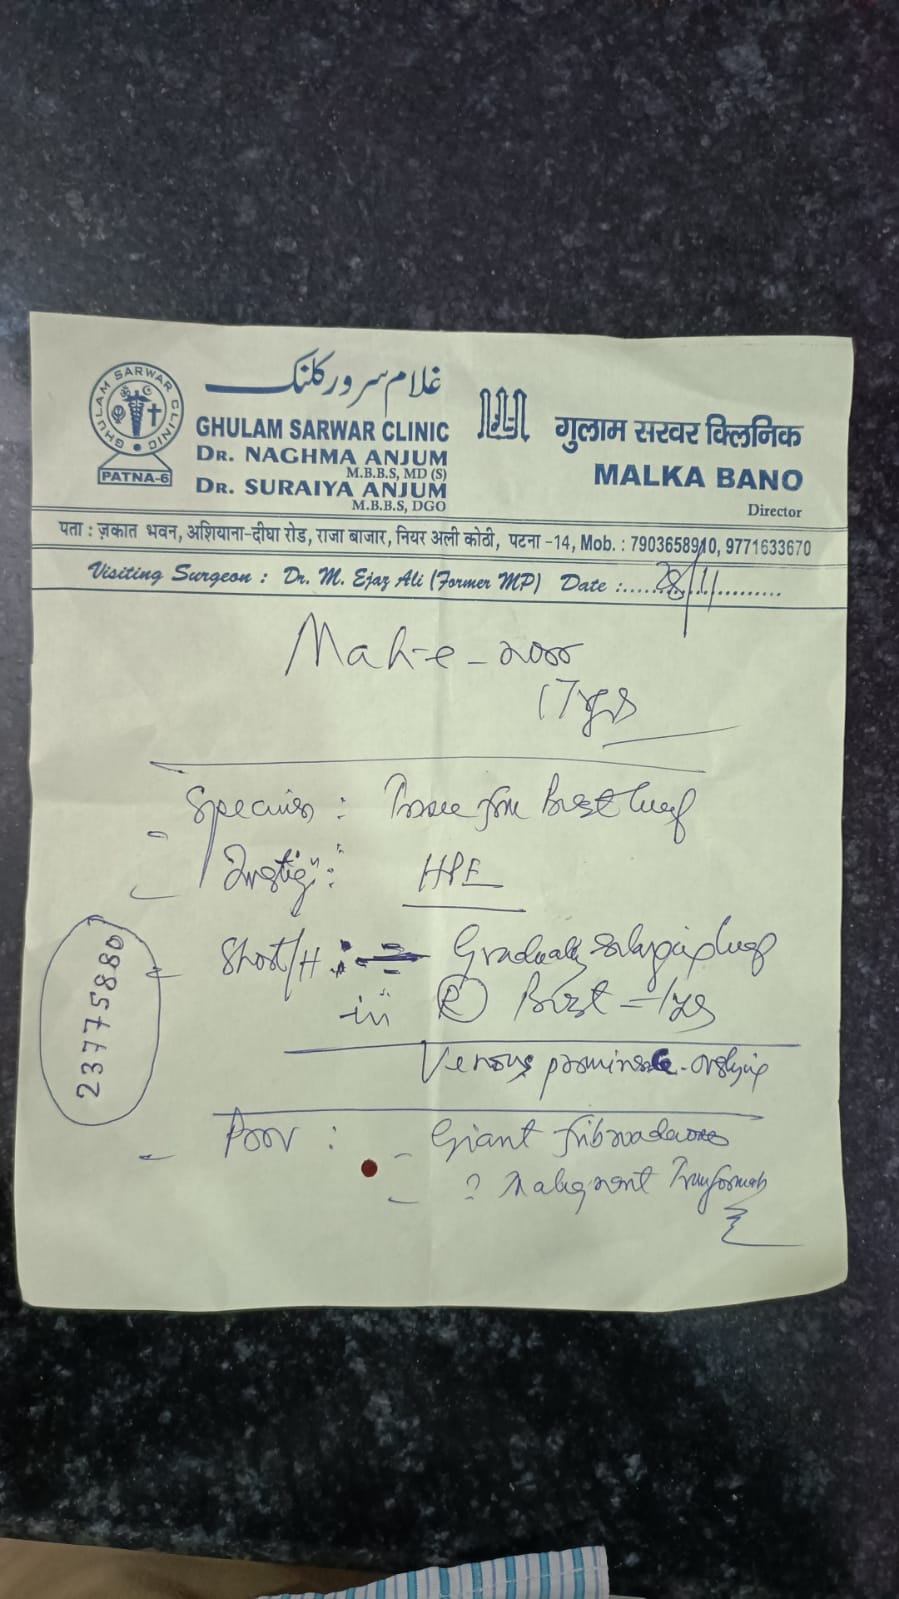 غلام سرور کلنک
GHULAM SARWAR CLINIC
PATNA-6
GHULAM SARWAR CLINIC
DR. NAGHMA ANJUM
M.B.B.S, MD (S)
DR. SURAIYA ANJUM
M.B.B.S, DGO
गुलाम सरवर क्लिनिक
MALKA BANO
Director
पता : ज़कात भवन, अशियाना-दीघा रोड, राजा बाजार, नियर अली कोठी, पटना -14, Mob. : 7903658910, 9771633670
Visiting Surgeon : Dr. M. Ejaz Ali (Former MP) Date : 28/11
Mah-e-noor
17 yrs
: Breast
HPE
Short/H : Gradually lump
in (R) Breast
Venous
Prov : Giant
? Malignant
23775880